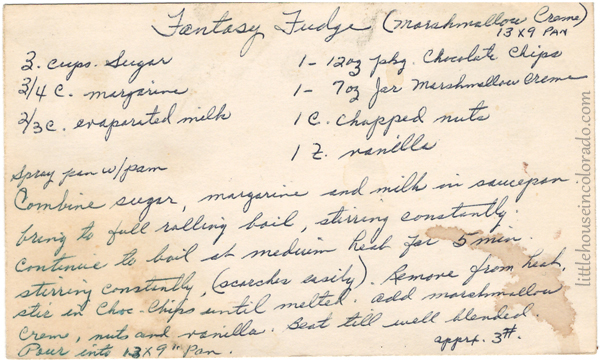 Fantasy Fudge (Marshmallow Creme)
13 x 9 PAN
3. cups. Sugar
3/4 C. margarine
2/3 C. evaporated milk
1 - 12 oz pkg. Chocolate Chips
1 - 7 oz Jar Marshmallow Creme
1 C. chopped nuts
1 t. vanilla
Spray pan w/pam
Combine sugar, margarine and milk in saucepan
bring to full rolling boil, stirring constantly.
Continue to boil at medium heat for 5 min.
stirring constantly, (scorches easily). Remove from heat,
stir in Choc. Chips until melted. add marshmallow
Creme, nuts and vanilla. Beat till well blended.
Pour into 13 x 9" Pan.
apprx. 3#.
littlehouseincolorado.com